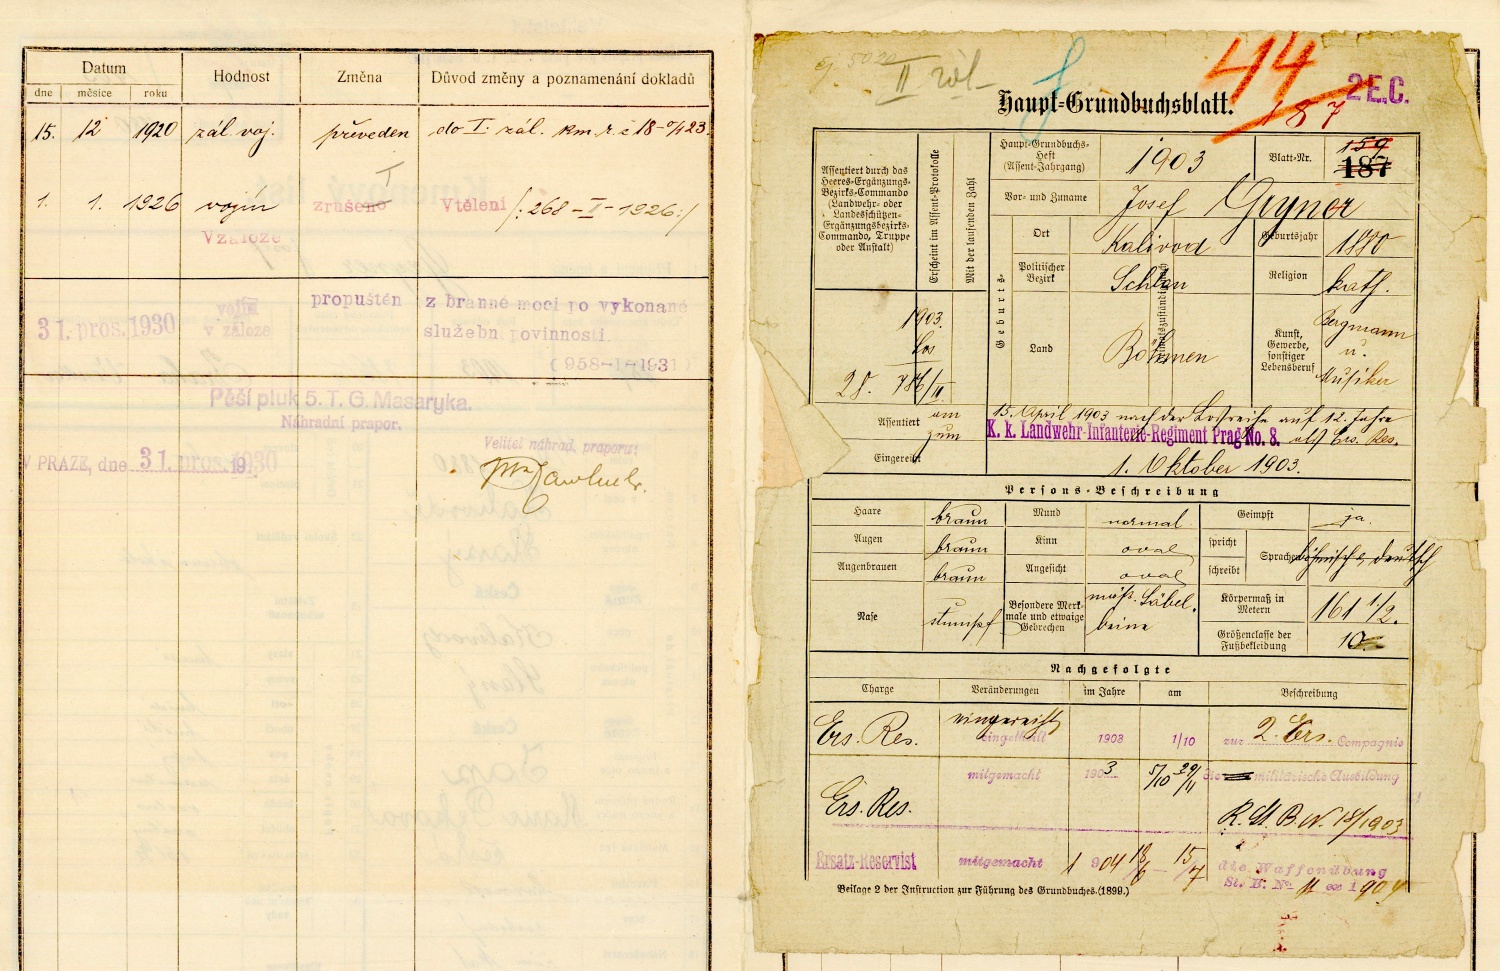 Datum
Hodnost
Změna
Důvod změny a poznamenání dokladů
dne
měsíce
roku
15. 12 1920 zál. voj. převeden do I. zál. km. ř. č 18-
1. 1. 1926 vojín zrušeno Vtělení /: 268-II-1926 :/
V záloze
31. pros. 1930
vojín
v záloze
propuštěn
z branné moci po vykonané
služební povinnosti.
(958-I-1931)
Pěší pluk 5. T. G. Masaryka.
Náhradní prapor.
V PRAZE, dne 31. pros. 1930
19
Velitel náhrad. praporu:
II zál
44
187
2 E.C.
Haupt-Grundbuchsblatt.
Assentiert durch das
Heeres-Ergänzungs-
Bezirks-Commando
(Landwehr- oder
Landesschützen-
Ergänzungsbezirks-
Commando, Truppe
oder Anstalt)
Erscheint im Assent-Protokolle
Mit der laufenden Zahl
Haupt-Grundbuchs-
Heft
(Assent-Jahrgang)
1903
Blatt-Nr.
159
187
Vor- und Zuname
Josef Gryner
Geburts-
Ort
Kalivod
Geburtsjahr
1880
Politischer
Bezirk
Schlan
Religion
kath.
Land
Böhmen
Kunst,
Gewerbe,
sonstiger
Lebensberuf
Bergmann
u.
Musiker
1903.
Los
28. 786/II
Assentiert
am
zum
15. April 1903 nach der Losreihe auf 12 Jahre
K. k. Landwehr-Infanterie-Regiment Prag No. 8. als Ers. Res.
Eingereiht
1. Oktober 1903.
Persons-Beschreibung
Haare
braun
Mund
normal
Geimpft
ja.
Augen
braun
Kinn
oval
spricht
schreibt
Sprachen
böhmisch, deutsch
Augenbrauen
braun
Angesicht
oval
Nase
stumpf
Besondere Merk-
male und etwaige
Gebrechen
mäß. Säbel-
beine
Körpermaß in
Metern
161 1/2.
Größenclasse der
Fußbekleidung
10
Nachgefolgte
Charge
Veränderungen
im Jahre
am
Beschreibung
Ers. Res.
eingereiht
eingetheilt
1903
1/10
zur 2. Ers. Compagnie
mitgemacht
1903
5/10 29/11
die militärische Ausbildung
Ers. Res.
R. St. B. N. 18/1903
Ersatz-Reservist
mitgemacht
1904
18/6 - 15/7
die Waffenübung
St. B. No 11 ex 1904
Beilage 2 der Instruction zur Führung des Grundbuches. (1899.)